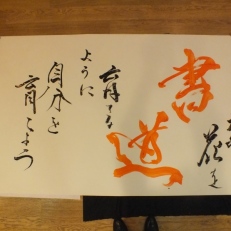 書道
花を
育てる
ように
自分を
育てよう